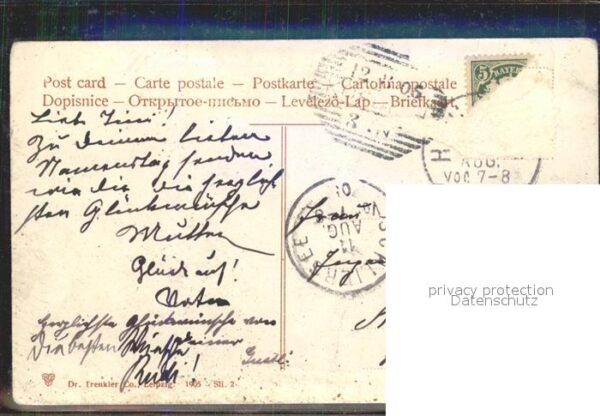 Post card — Carte postale — Postkarte — Cartolina postale
Dopisnice — Открытое-письмо — Levelező-Lap — Briefkaart.
5 BAYERN
AUG.
VOR. 7-8
Zu Deinem lieben
Namenstag senden
wir Dir die herzlich-
sten Glückwünsche
Mutter
Glück auf!
Vater
Herzlichste Glückwünsche von
Die besten Wünsche Deiner
Gustl
Rudi!
SCHLIERSEE
11
AUG.
Frau
privacy protection
Datenschutz
Dr. Trenkler Co., Leipzig. 1905 Sli. 2